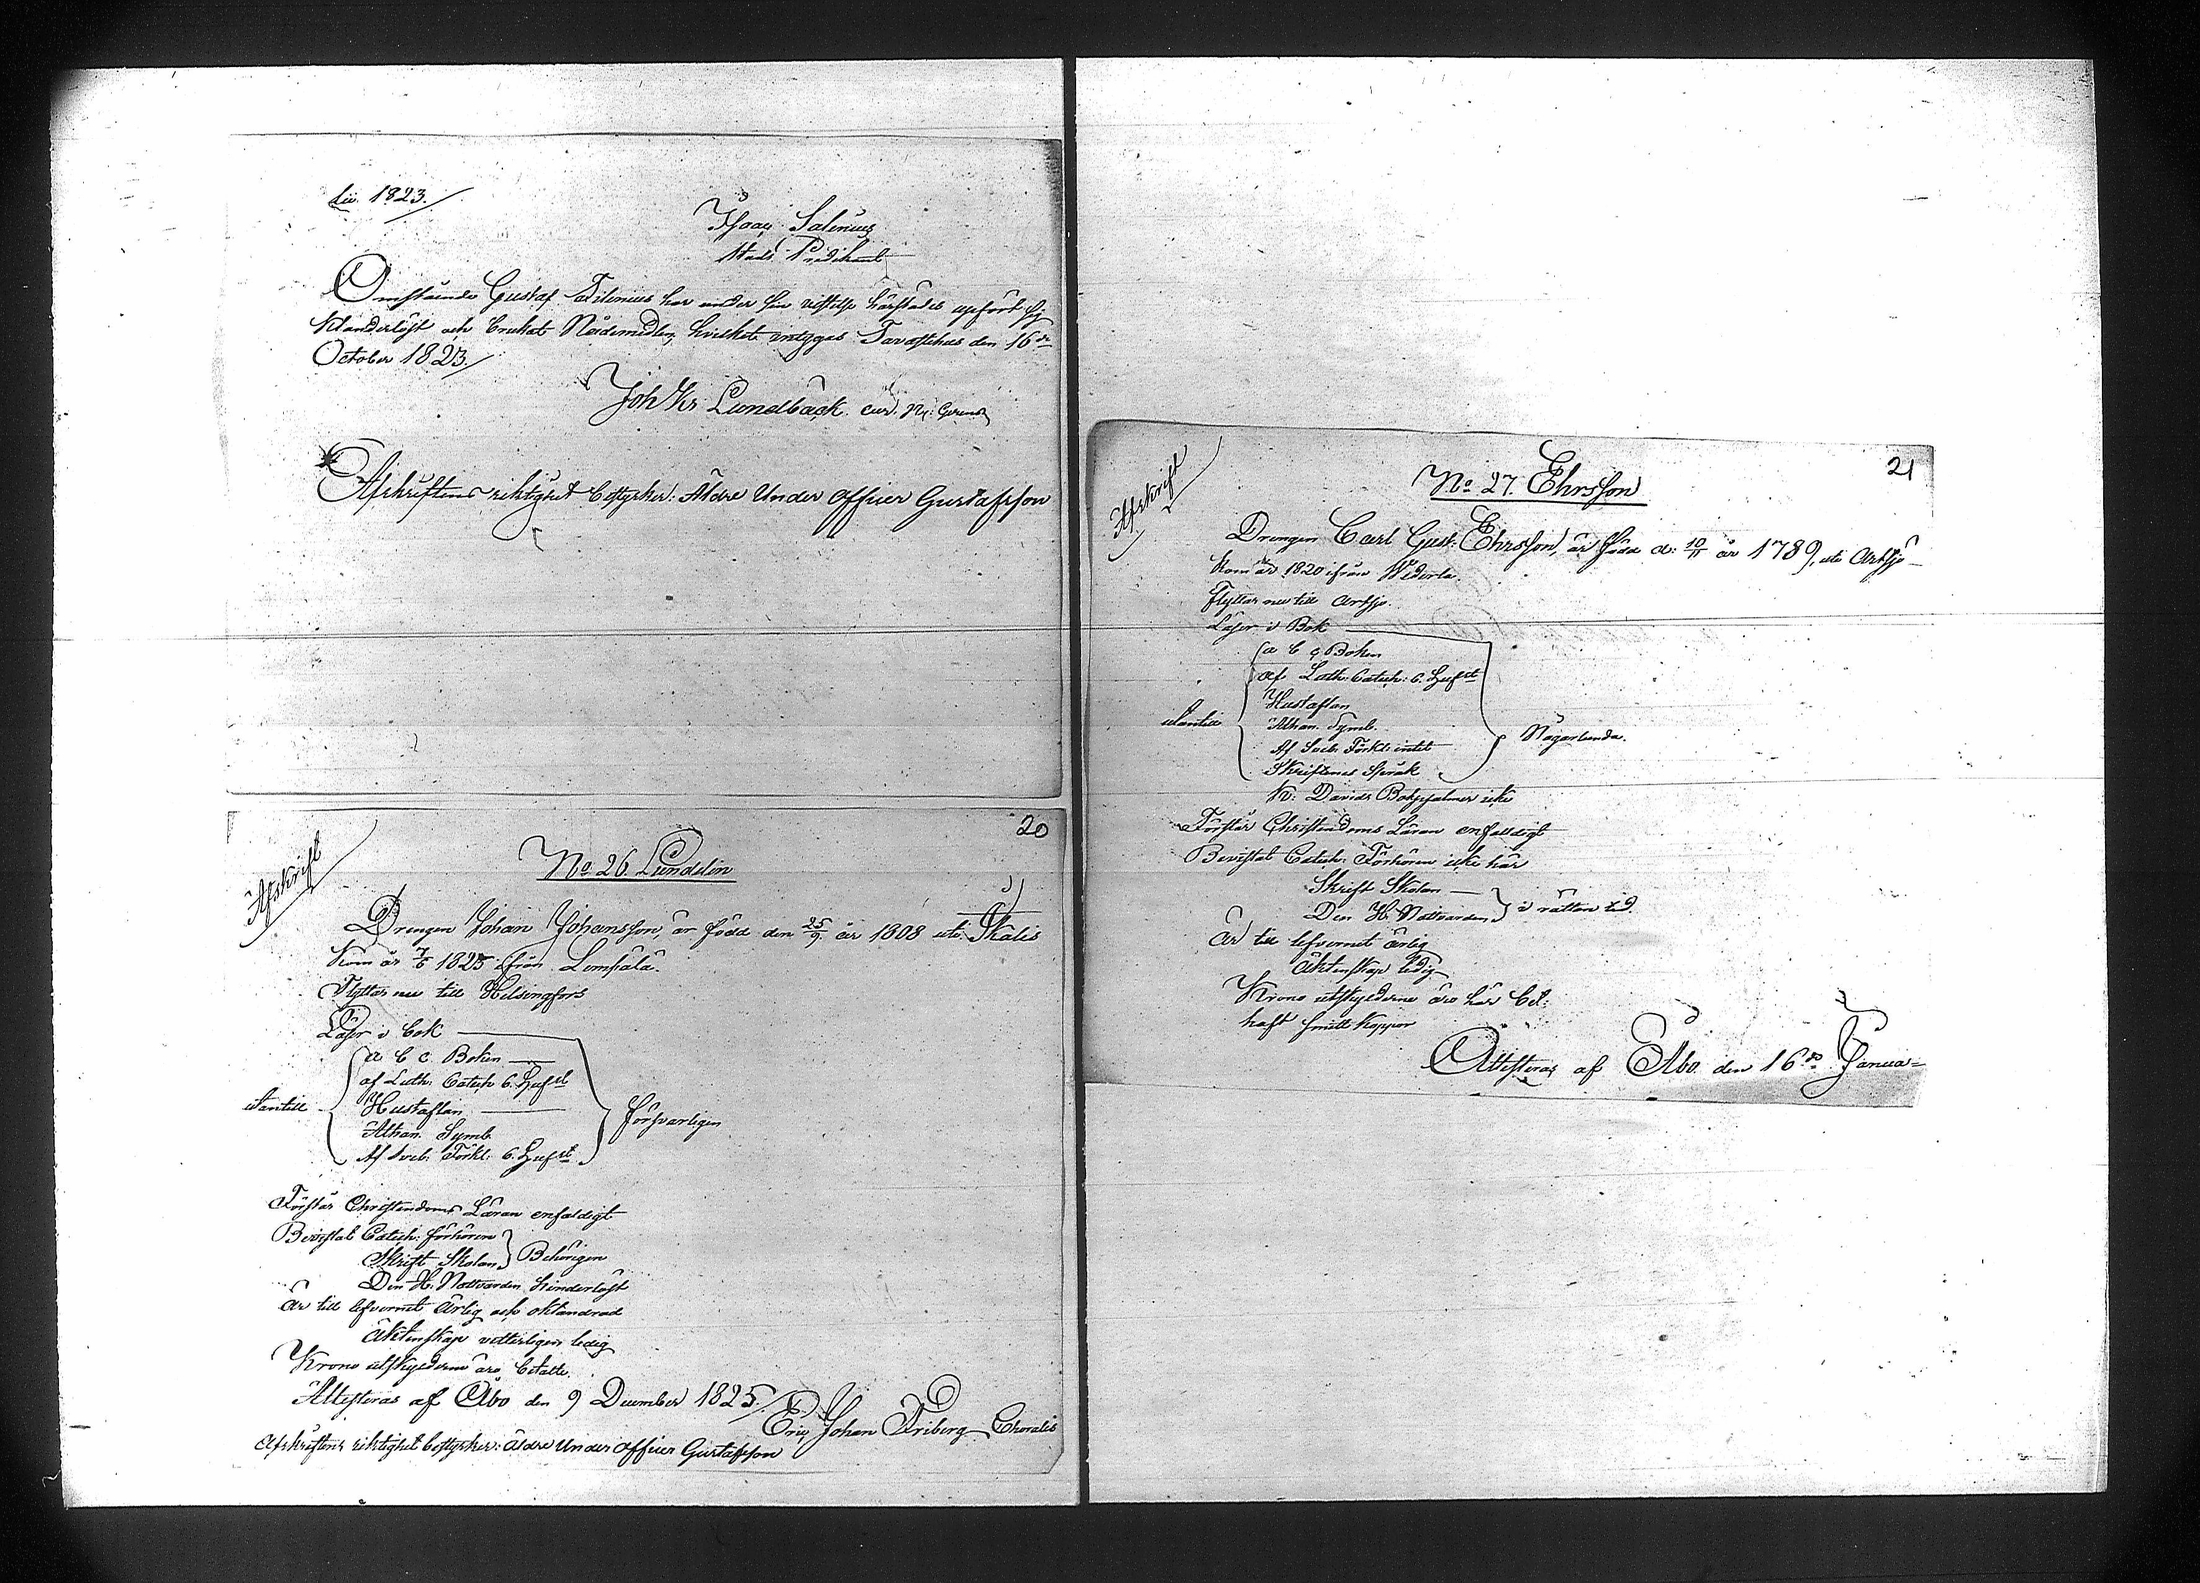 lii. 1823.
Isaac Salenius
Stads Predikant
Omstående Gustaf Filenius har under sin vistelse härstädes upfört sig
Klanderlöst och brukat Nådemedlen, hvilket intygas Tavastehus den 16de
October 1823.
Joh Kr Lundbäck. cur.
Afskriftens riktighet bestyrker: Äldre Under Officer Gustafsson
20
Afskrift
No 26. Lundelin
Drengen Johan Johansson, är född den 25/9 år 1808 uti Skalis
Kom år 7/6 1825 ifrån Lempälä.
Flyttar nu till Helsingfors
Läser i bok
a b c Boken
af Luth: Catech 6. Hufst
utantill
Hustaflan
försvarligen
Athan. Symb.
Af Sveb: Förkl: 6. Hufst
Förstår Christendoms Läran enfaldigt
Bevistat Catech: förhören
Skrift Skolan
Behörigen
Den H. Nattvarden hinderlöst
Är till lefvernet ärlig och oklandrad
äktenskap vetterligen ledig
Krono utskylderne äro betalte.
Attesteras af Åbo den 9 December 1825.
Eric Johan Friberg Choralis
Afskriftens riktighet bestyrker: äldre Under Officer Gustafsson
21
Afskrift
No 27. Ehrsson
Drengen Carl Gust: Ehrsson, är född d: 10/11 år 1789, uti Artsjö
Kom år 1820 ifrån Wederla.
Flyttar nu till Artsjö.
Läser i Bok
a b c Boken
af Luth: Catech: 6. Hufst
Hustaflan
utantill
Athan. Symb.
Någorlunda.
Af Sveb: Förkl: intet
Skriftenes Språk
K: Davids Botpsalmer icke
Förstår Christendoms Läran enfaldigt
Bevistat Catech: Förhören icke här
Skrift Skolan
Den H. Nattvarden
i rättan tid.
Är till lefvernet ärlig
äktenskap ledig
Krono utskylderne äro här bet:
haft smitt koppor
Attesteras af Åbo den 16de Janua=